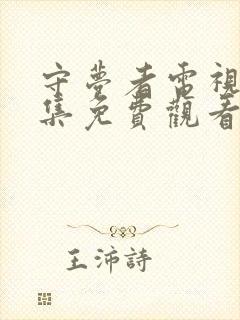 守夢者電視
集免費觀看
王沛詩